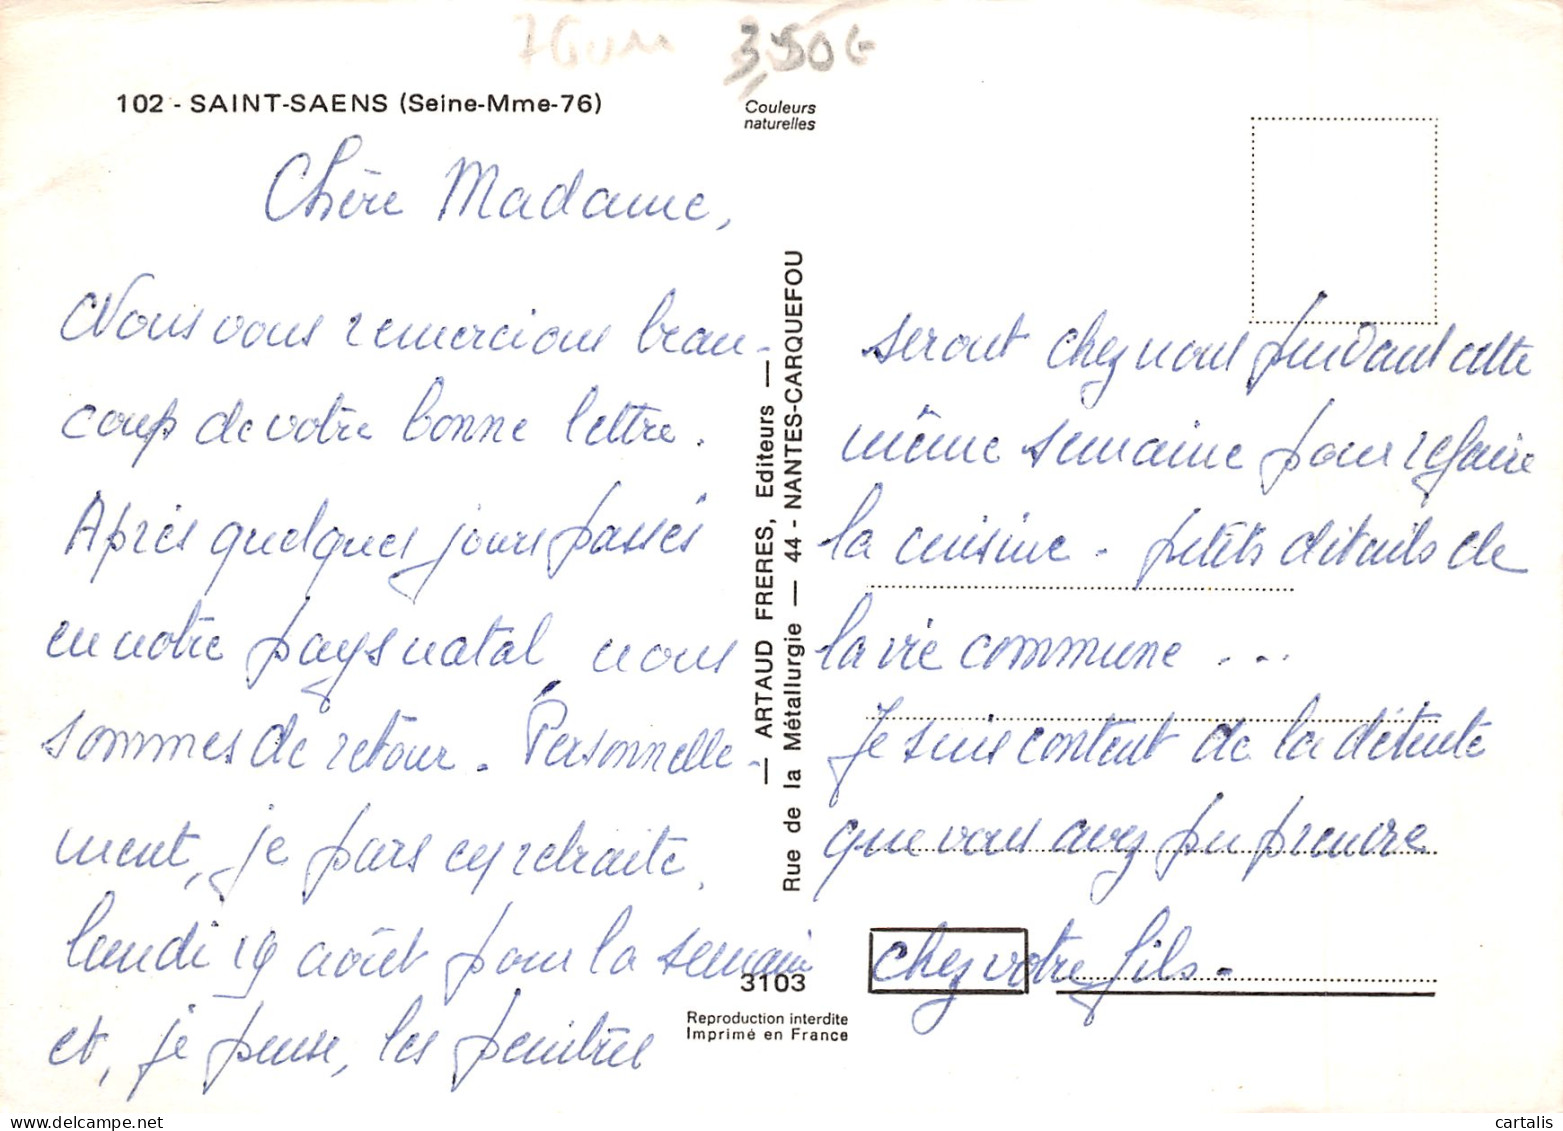 3,50€
102 - SAINT-SAENS (Seine-Mme-76)
Couleurs
naturelles
Chère Madame,
Nous vous remercions beau-
coup de votre bonne lettre.
Après quelques jours passés
en notre pays natal nous
sommes de retour. Personnelle-
ment, je pars en retraite,
lundi 19 août pour la semaine
et, je pense, les peintres
— ARTAUD FRERES, Editeurs —
Rue de la Métallurgie — 44 - NANTES-CARQUEFOU
seront chez nous pendant cette
même semaine pour refaire
la cuisine. petits détails de
la vie commune ...
Je suis content de la détente
que vous avez pu prendre
chez votre fils.
3103
Reproduction interdite
Imprimé en France
cartalis